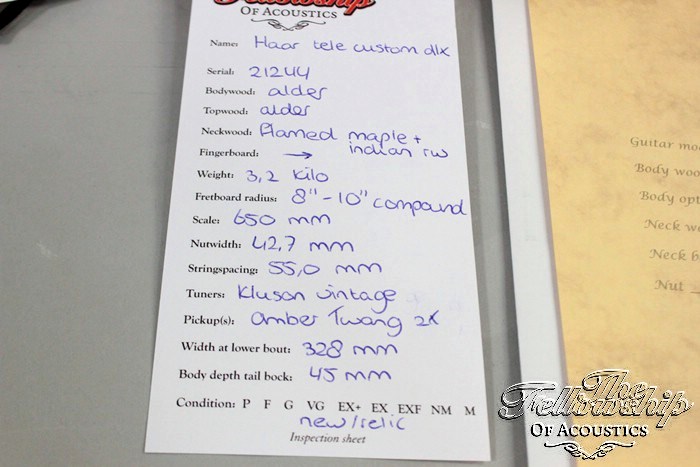 Fellowship
OF ACOUSTICS
Name: Haar tele custom dlx
Serial: 21244
Bodywood: alder
Topwood: alder
Neckwood: Flamed maple +
indian rw
Fingerboard: →
Weight: 3,2 kilo
Fretboard radius: 8" - 10" compound
Scale: 650 mm
Nutwidth: 42,7 mm
Stringspacing: 55,0 mm
Tuners: Kluson vintage
Pickup(s): Amber Twang 2x
Width at lower bout: 328 mm
Body depth tail bock: 45 mm
Condition: P F G VG EX+ EX EXF NM M
new/relic
Inspection sheet
Guitar mo
Body woo
Body opt
Neck wo
Neck b
Nut
The
Fellowship
OF ACOUSTICS